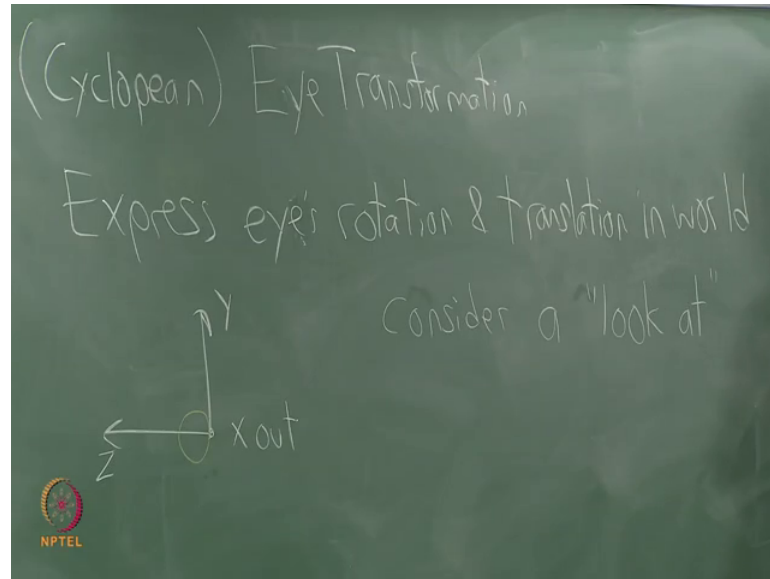 (Cyclopean) Eye Transformation
Express eye's rotation & translation in world
Consider a "look at"
Y
X out
Z
NPTEL